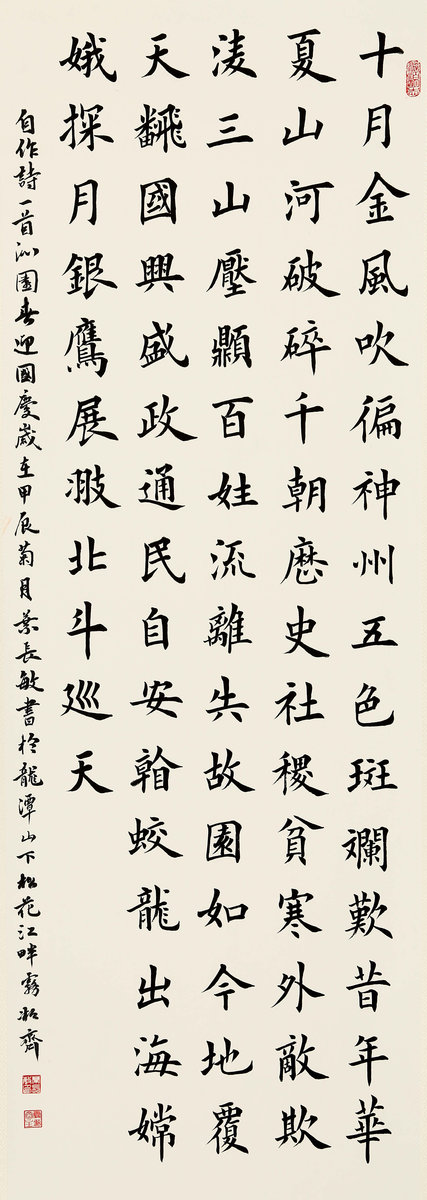 十月金風吹徧神州五色斑斕歎昔年華
夏山河破碎千朝歷史社稷貧寒外敵欺
淩三山壓顯百姓流離失故園如今地覆
天飜國興盛政通民自安翰蛟龍出海嫦
娥探月銀鷹展翅北斗巡天
自作詩一首沁園春迎國慶歲在甲辰菊月葉長敏書於龍潭山下松花江畔霧凇齋